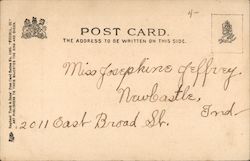 4-
POST CARD.
THE ADDRESS TO BE WRITTEN ON THIS SIDE.
Miss Josephine Jeffrey
Newcastle,
Ind.
2011 East Broad St.